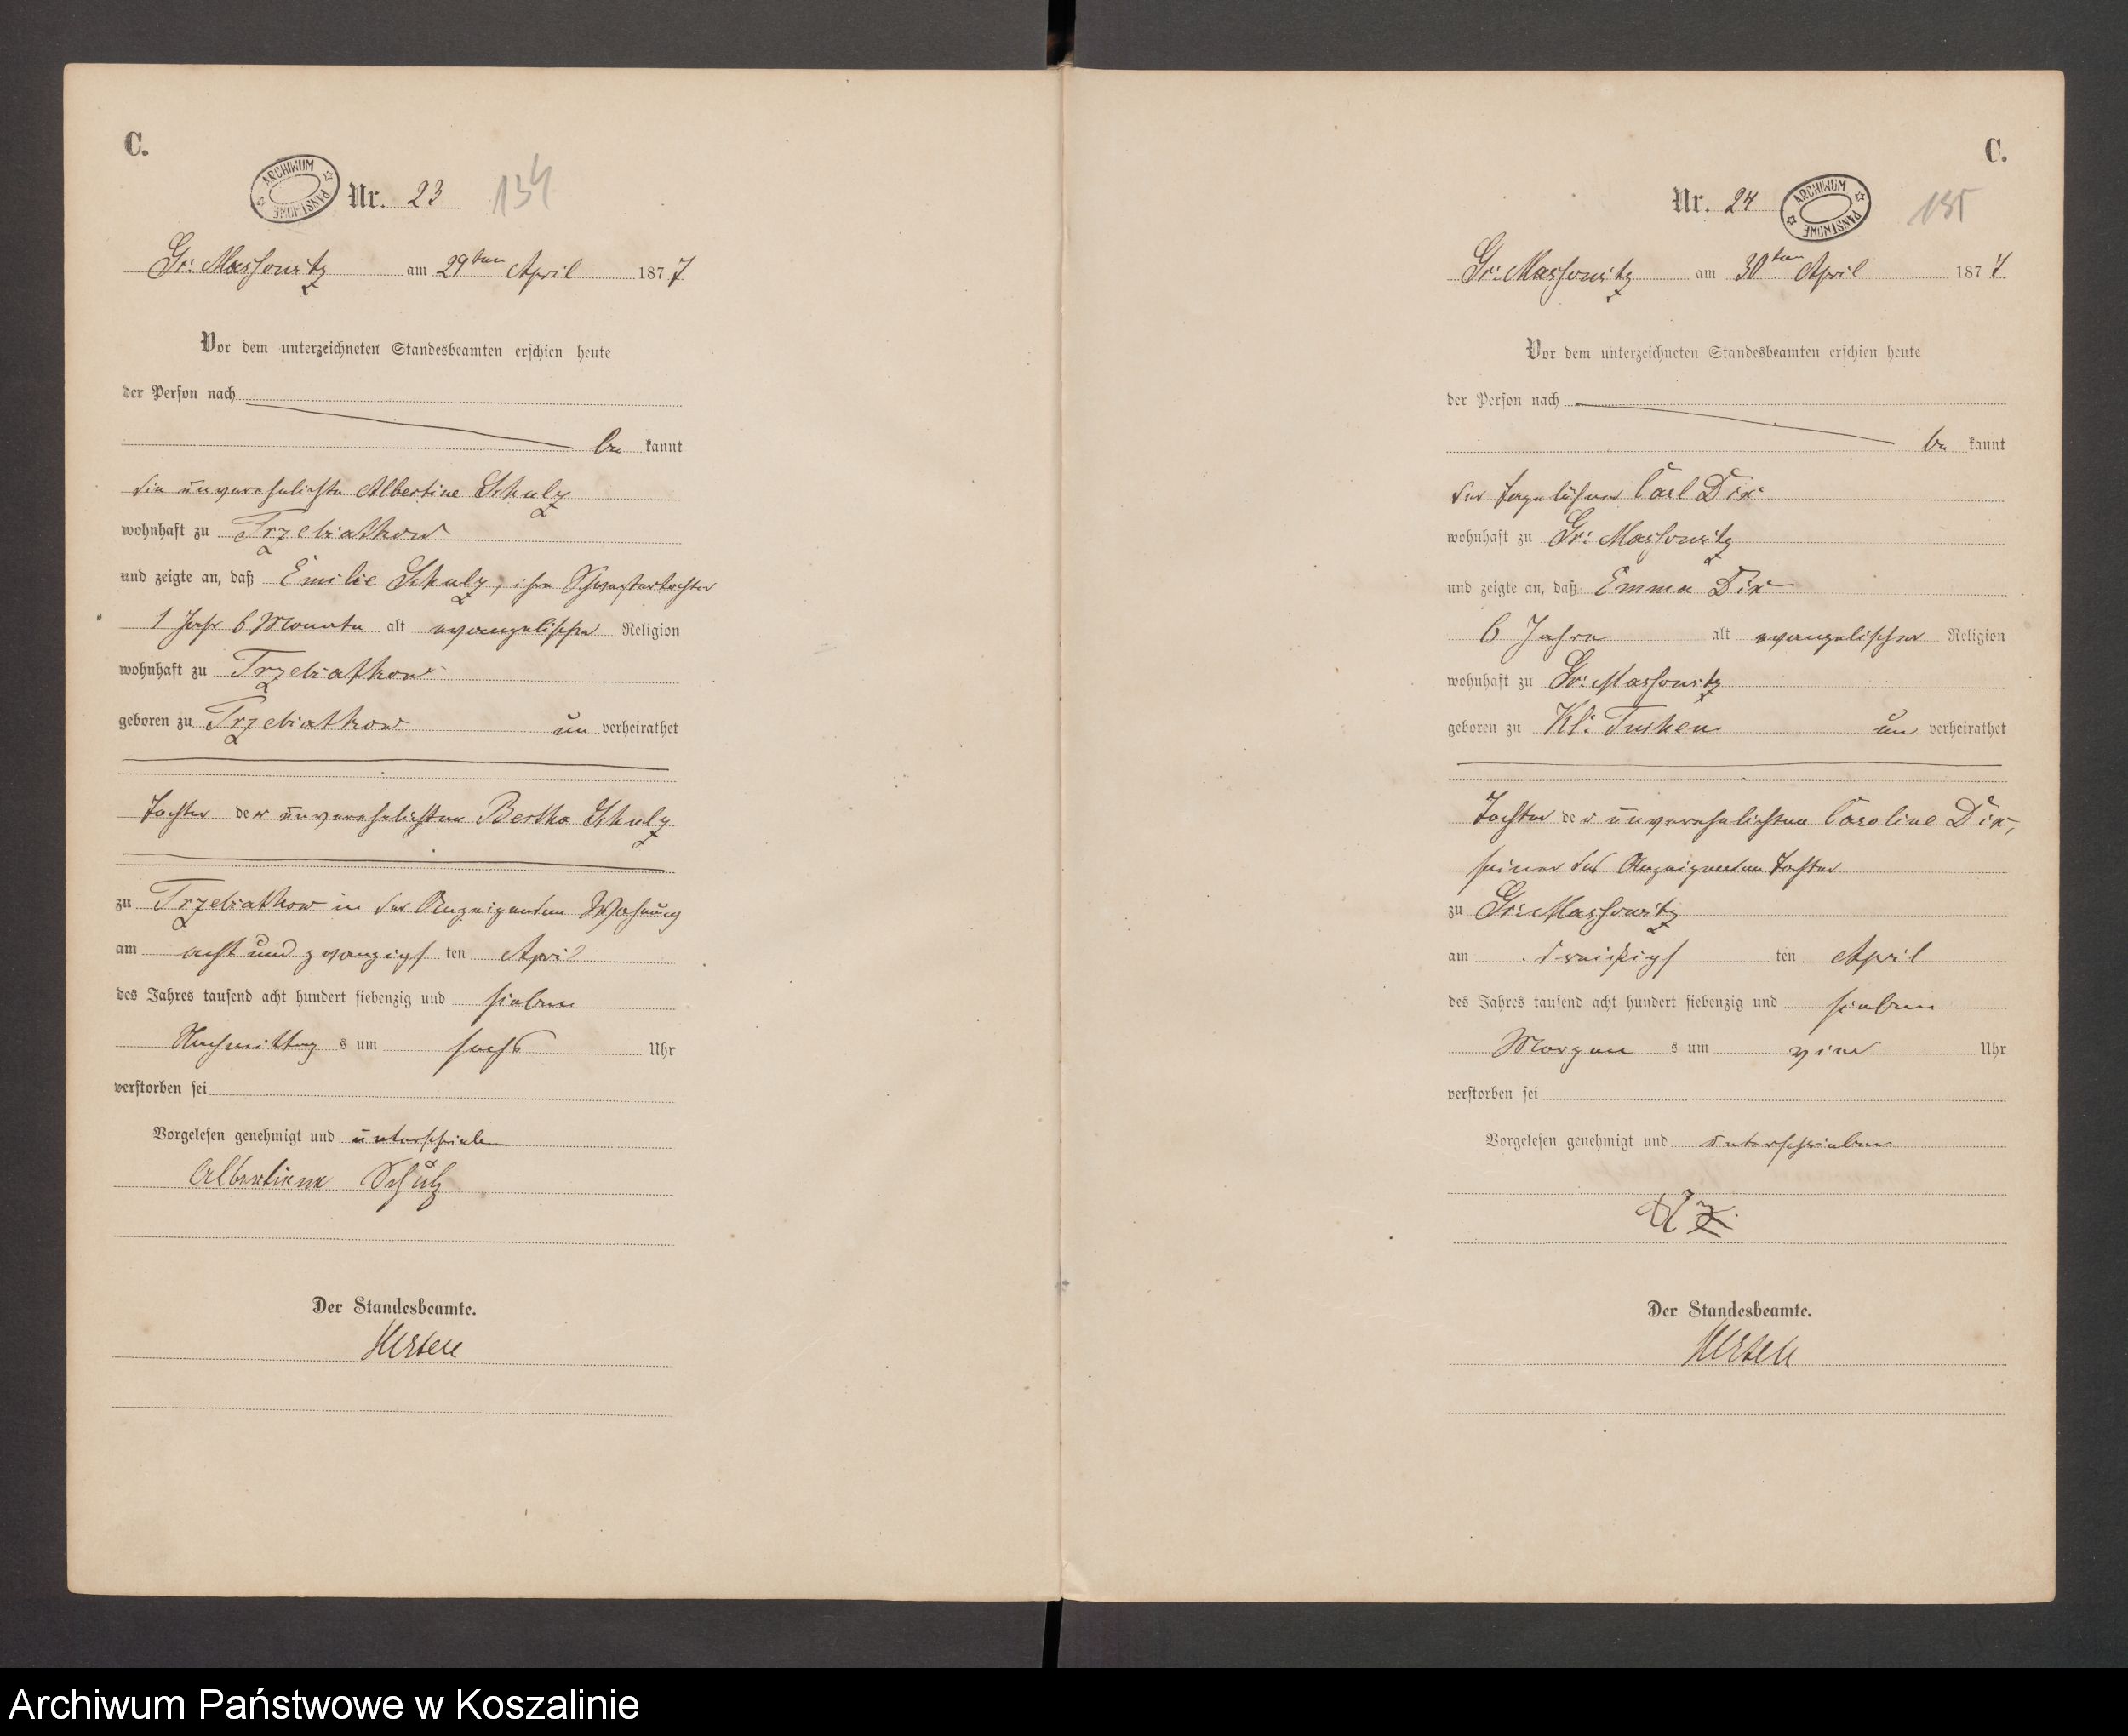 C.
ARCHIWUM PAŃSTWOWE
Nr. 23 134
Gr: Massowitz am 29ten April 1877
Vor dem unterzeichneten Standesbeamten erschien heute
der Person nach
be kannt
die unverehelichte Albertine Schulz
wohnhaft zu Trzebiatkow
und zeigte an, daß Emilie Schulz, ihre Schwestertochter
1 Jahr 6 Monate alt evangelischer Religion
wohnhaft zu Trzebiatkow
geboren zu Trzebiatkow un verheirathet
Tochter der unverehelichten Bertha Schulz
zu Trzebiatkow in der Anzeigenden Wohnung
am acht und zwanzigs ten April
des Jahres tausend acht hundert siebenzig und sieben
Nachmittag s um sechs Uhr
verstorben sei
Vorgelesen genehmigt und unterschrieben
Albertiene Schulz
Der Standesbeamte.
C.
Nr. 24 ARCHIWUM PAŃSTWOWE 135
Gr: Massowitz am 30ten April 1877
Vor dem unterzeichneten Standesbeamten erschien heute
der Person nach
be kannt
der Tagelöhner Carl Dix
wohnhaft zu Gr: Massowitz
und zeigte an, daß Emma Dix
6 Jahre alt evangelischer Religion
wohnhaft zu Gr: Massowitz
geboren zu Kl: Tuchen un verheirathet
Tochter der unverehelichten Caroline Dix,
seiner des Anzeigenden Tochter
zu Gr: Massowitz
am dreißigs ten April
des Jahres tausend acht hundert siebenzig und sieben
Morgen s um vier Uhr
verstorben sei
Vorgelesen genehmigt und unterschrieben
Der Standesbeamte.
Archiwum Państwowe w Koszalinie